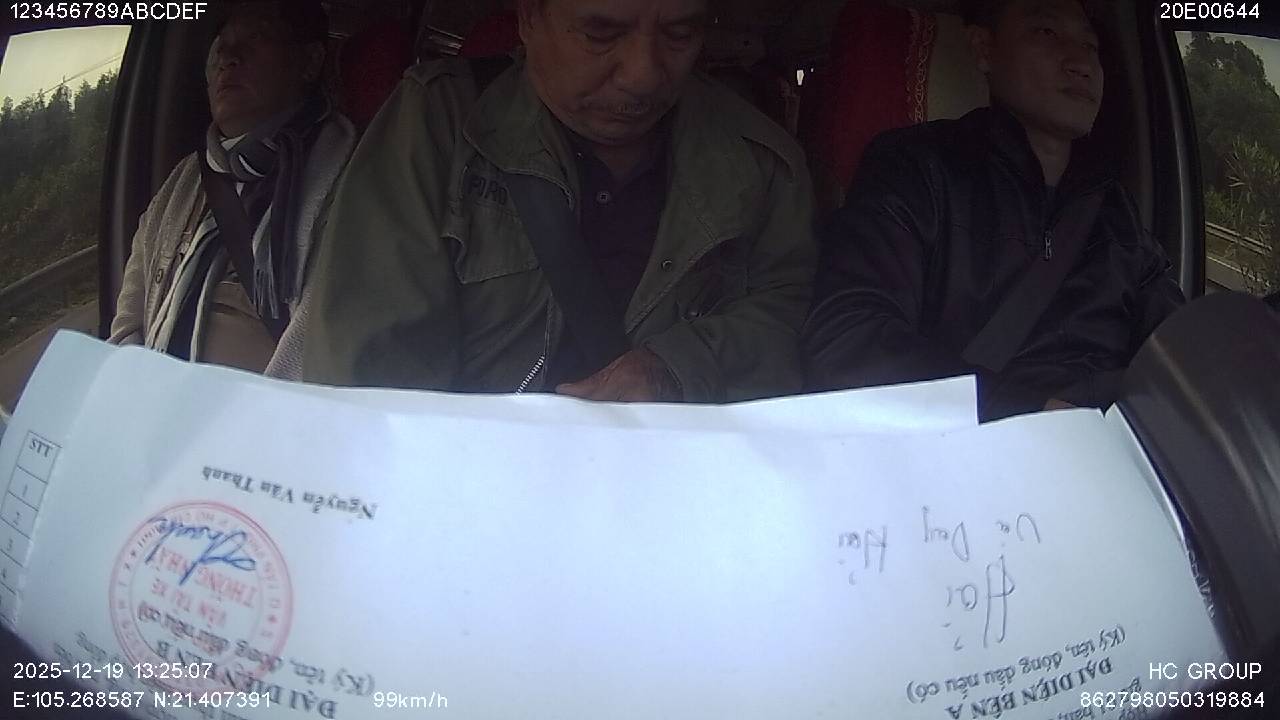 123456789ABCDEF
20E00644
PIRO
STT
1
2
3
4
ĐẠI DIỆN BÊN B
(Ký tên, đóng dấu nếu có)
VẬN TẢI XE
THỐNG NHẤT
Nguyễn Văn Thanh
ĐẠI DIỆN BÊN A
(Ký tên, đóng dấu nếu có)
Hải
Vũ Duy Hải
2025-12-19 13:25:07
E:105.268587 N:21.407391 99km/h
HC GROUP
862798050319884